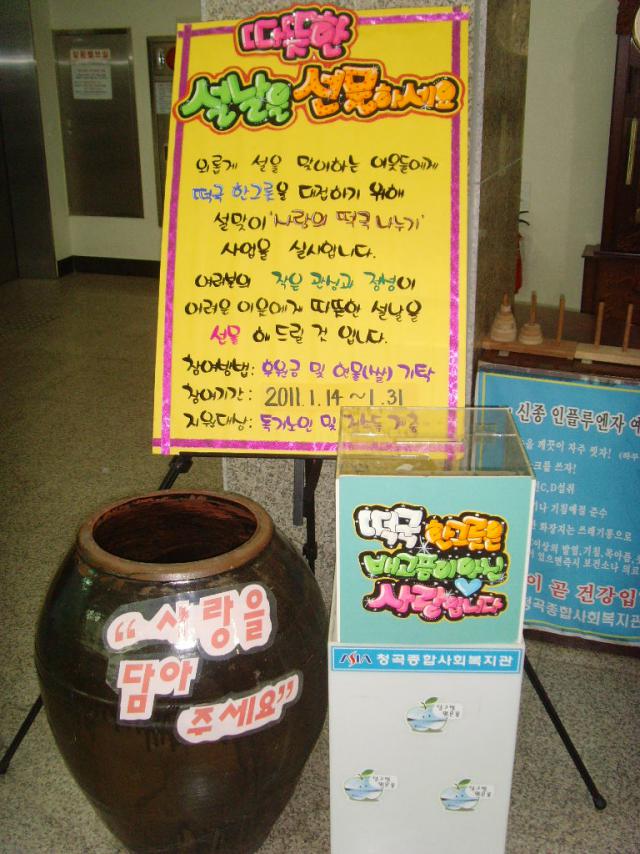 따뜻한
설날을 선물하세요
외롭게 설을 맞이하는 이웃들에게
떡국 한그릇을 대접하기 위해
설맞이 '사랑의 떡국 나누기'
사업을 실시합니다.
여러분의 작은 관심과 정성이
어려운 이웃에게 따뜻한 설날을
선물 해 드릴 것 입니다.
참여방법: 후원금 및 현물(쌀) 기탁
참여기간: 2011.1.14 ~ 1.31
지원대상: 독거노인 및
떡국 한그릇은
배고픔이 아닌
사랑입니다
ASIA 청곡종합사회복지관
"사랑을
담아
주세요"
신종 인플루엔자 예
깨끗이 자주 씻자!
크를 쓰자!
C,D섭취
나 기침예절 준수
화장지는 쓰레기통으로
이상의 발열,기침,목아픔,
있으면즉시 보건소나 의료
이 곧 건강입
청곡종합사회복지관